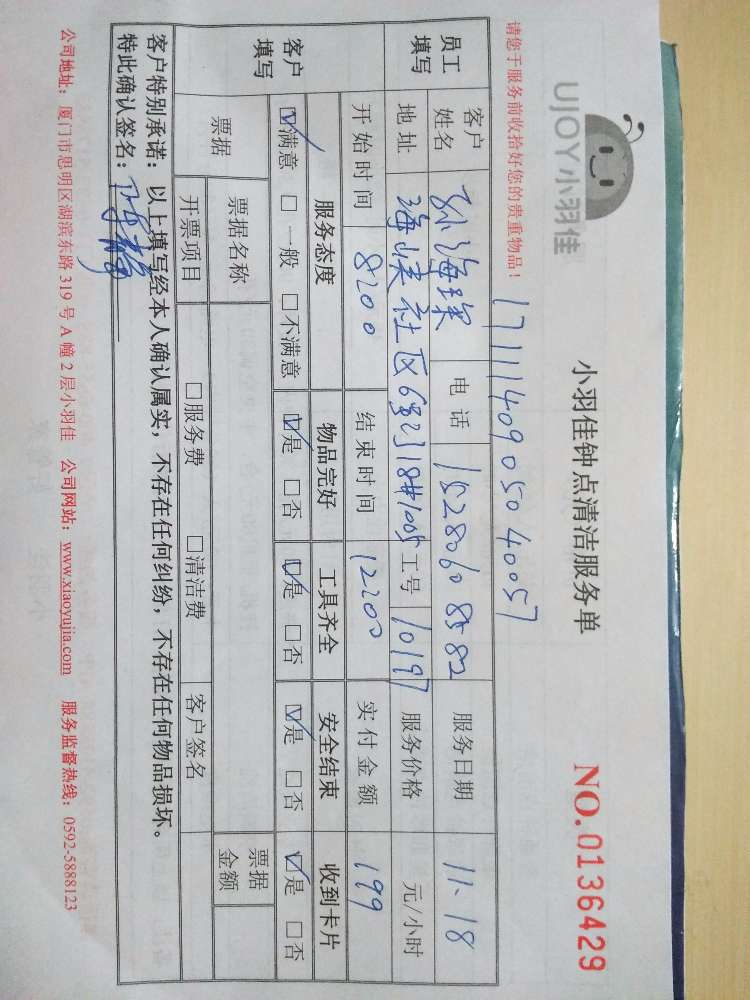 UJOY小羽佳
小羽佳钟点清洁服务单
NO.0136429
请您于服务前收拾好您的贵重物品！
17111409050 4057
员工填写 客户姓名 孙海琛 电话 15280608582 服务日期 11.18
地址 海峡社区6号2318#1005 工号 10197 服务价格 元/小时
开始时间 8:00 结束时间 12:00 实付金额 199
客户填写 服务态度 物品完好 工具齐全 安全结束 收到卡片
☑满意 □一般 □不满意 ☑是 □否 ☑是 □否 ☑是 □否 ☑是 □否
票据 票据名称 票据金额
开票项目 □服务费 □清洁费 客户签名
客户特别承诺：以上填写经本人确认属实，不存在任何纠纷，不存在任何物品损坏。
特此确认签名：
公司地址：厦门市思明区湖滨东路 319 号 A 幢 2 层小羽佳 公司网站：www.xiaoyujia.com 服务监督热线：0592-5888123